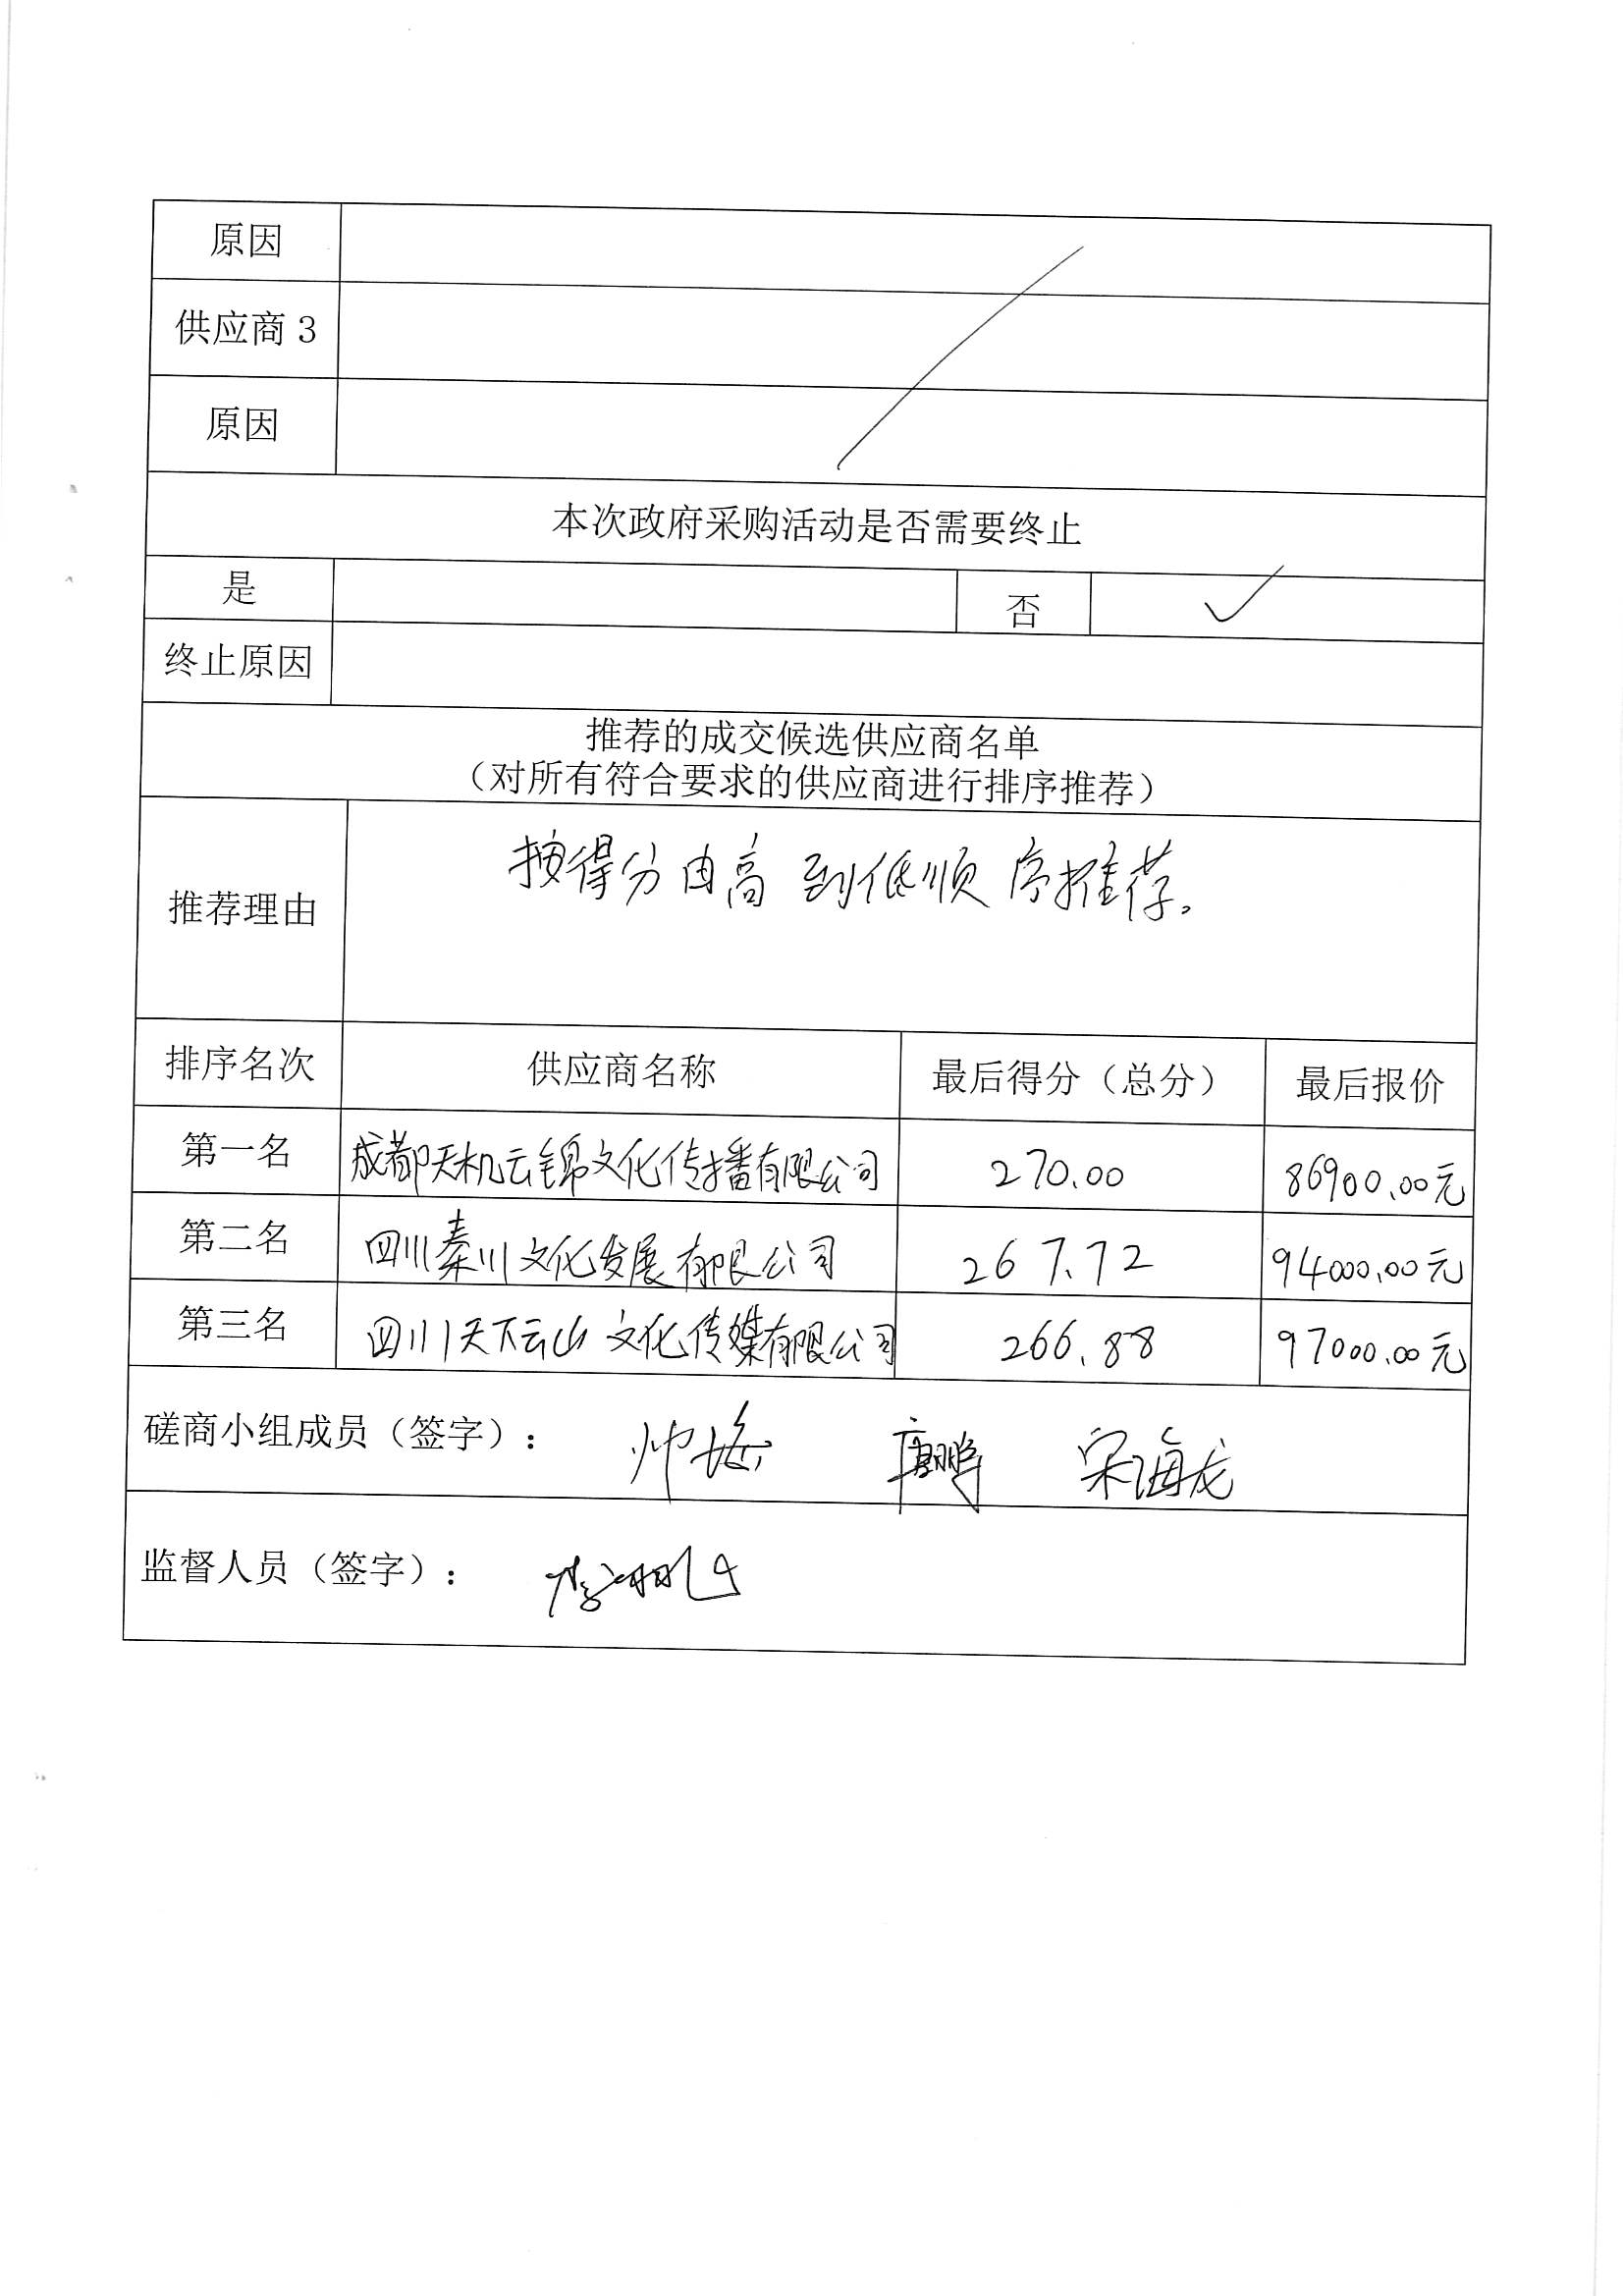 原因
供应商 3
原因
本次政府采购活动是否需要终止
是 否 ✓
终止原因
推荐的成交候选供应商名单
（对所有符合要求的供应商进行排序推荐）
推荐理由 按得分由高到低顺序推荐。
排序名次 供应商名称 最后得分（总分） 最后报价
第一名 成都天机云锦文化传播有限公司 270.00 86900.00元
第二名 四川秦川文化发展有限公司 267.72 94000.00元
第三名 四川天下云山文化传媒有限公司 266.88 97000.00元
磋商小组成员（签字）： 唐鹏 宋海龙
监督人员（签字）：